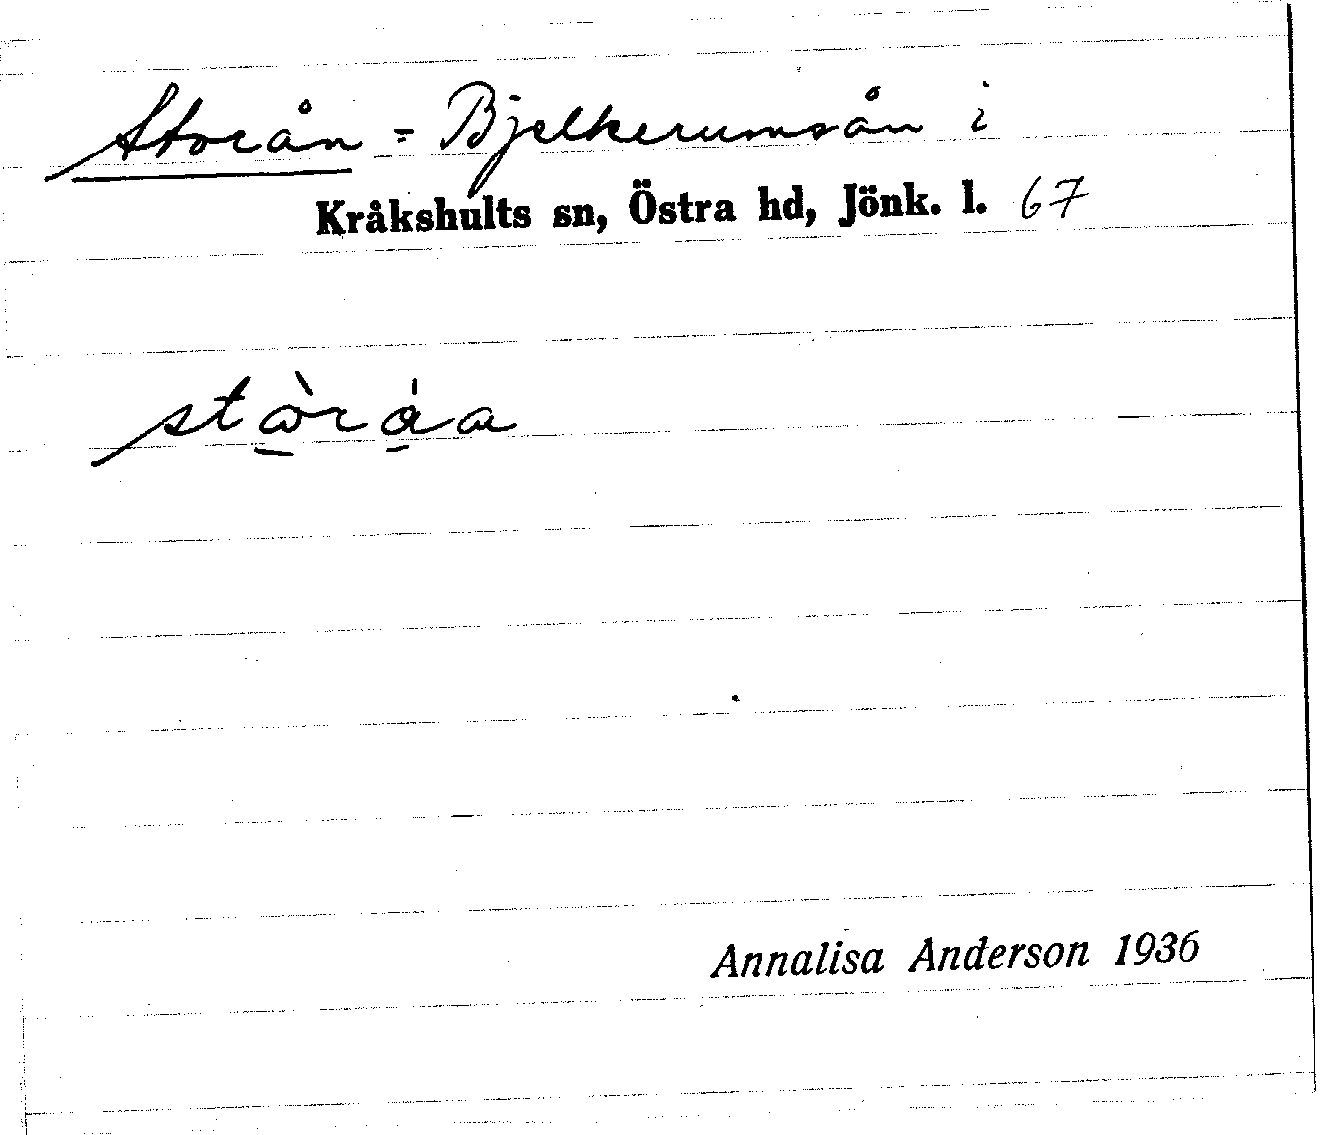 Storån = Bjelkerumsån i
Kråkshults sn, Östra hd, Jönk. l. 67
stàráa
Annalisa Anderson 1936